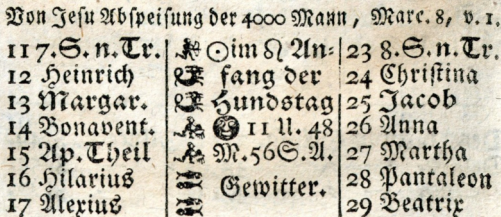 Von Jesu Abspeisung der 4000 Mann, Marc. 8, v. 1.
11 7. S. n. Tr. ☉ im ♌ An- 23 8. S. n. Tr.
12 Heinrich fang der 24 Christina
13 Margar. Hundstag 25 Jacob
14 Bonavent. 11 U. 48 26 Anna
15 Ap. Theil M. 56 S. A. 27 Martha
16 Hilarius Gewitter. 28 Pantaleon
17 Alexius 29 Beatrix